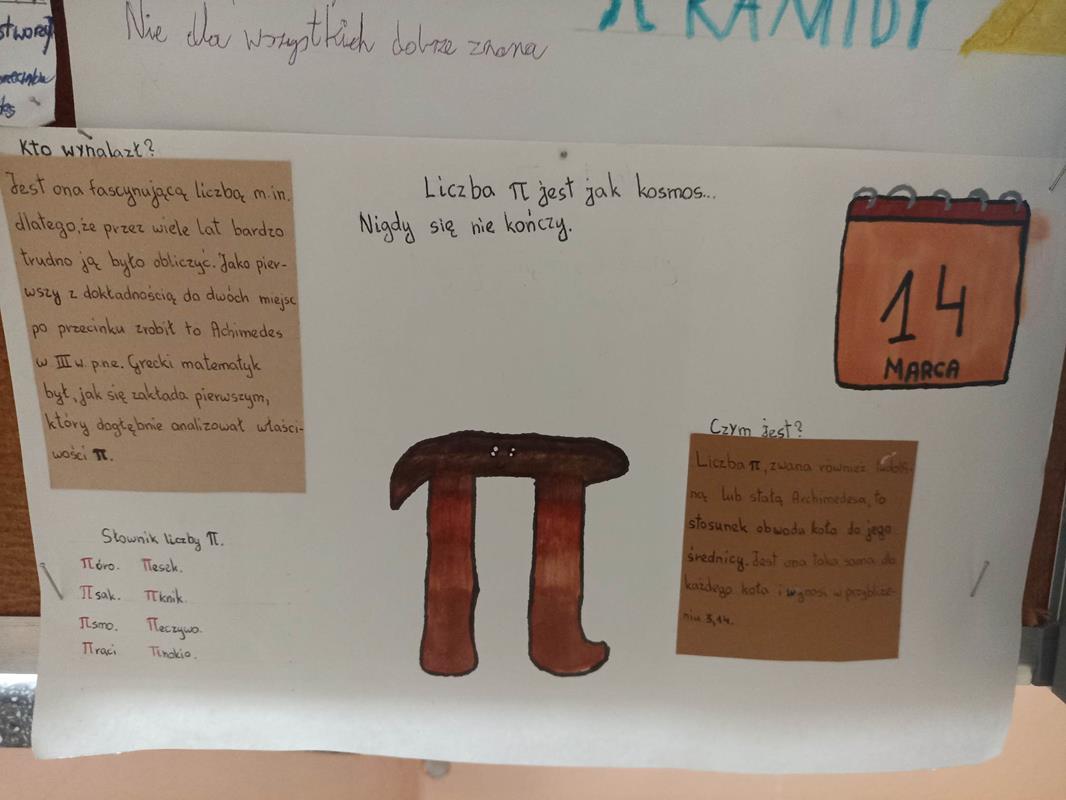 stworzył
Nie dla wszystkich dobrze znana
π RAMIDY
Kto wynalazł?
Jest ona fascynującą liczbą m.in.
dlatego, że przez wiele lat bardzo
trudno ją było obliczyć. Jako pier-
wszy z dokładnością do dwóch miejsc
po przecinku zrobił to Achimedes
w III w. p.n.e. Grecki matematyk
był, jak się zakłada pierwszym,
który dogłębnie analizował właści-
wości π.
Liczba π jest jak kosmos...
Nigdy się nie kończy.
14
MARCA
Słownik liczby π.
πóro. πesek.
πsak. πknik.
πsmo. πeczywo.
πraci πnokio.
Czym jest?
Liczba π, zwana również ludolfi-
ną lub stałą Archimedesa, to
stosunek obwodu koła do jego
średnicy. Jest ona taka sama dla
każdego koła i wynosi w przybliże-
niu 3,14.